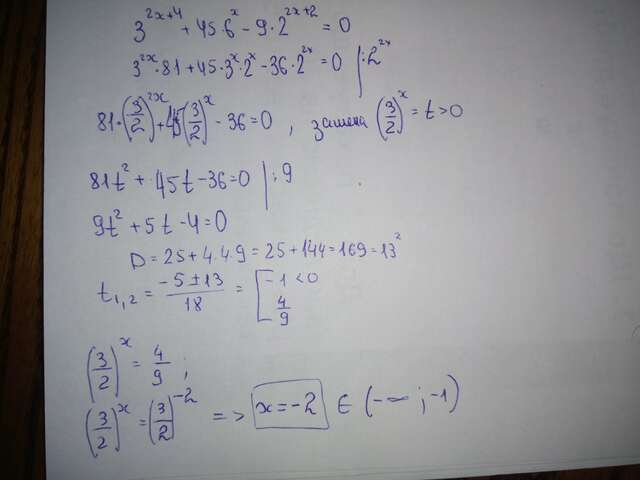 3^{2x+4} + 45·6^x − 9·2^{2x+2} = 0
3^{2x}·81 + 45·3^x·2^x − 36·2^{2x} = 0 | :2^{2x}
81·(3/2)^{2x} + 45(3/2)^x − 36 = 0 , замена (3/2)^x = t > 0
81t^2 + 45t − 36 = 0 | :9
9t^2 + 5t − 4 = 0
D = 25 + 4·4·9 = 25 + 144 = 169 = 13^2
t_{1,2} = (−5 ± 13)/18 = [ −1 < 0
4/9
(3/2)^x = 4/9 ;
(3/2)^x = (3/2)^{−2} => x = −2 ∈ (−∞ ; −1)